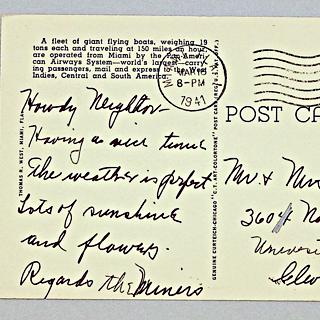 A fleet of giant flying boats, weighing 19
tons each and traveling at 150 miles an hour,
are operated from Miami by the Pan-Ameri-
can Airways System—world's largest—carry-
ing passengers, mail and express to the West
Indies, Central and South America.
MAR 15
8-PM
1941
Howdy Neighbor
Having a nice time
The weather is perfect
Lots of sunshine
and flowers.
Regards the Miners
THOMAS R. WEST, MIAMI, FLA.
GENUINE CURTEICH-CHICAGO "C.T. ART-COLORTONE" POST CARD (REG. U.S. PAT. OFF.)
POST CA
Mr. & Mrs
3604 No
Universi
Clev